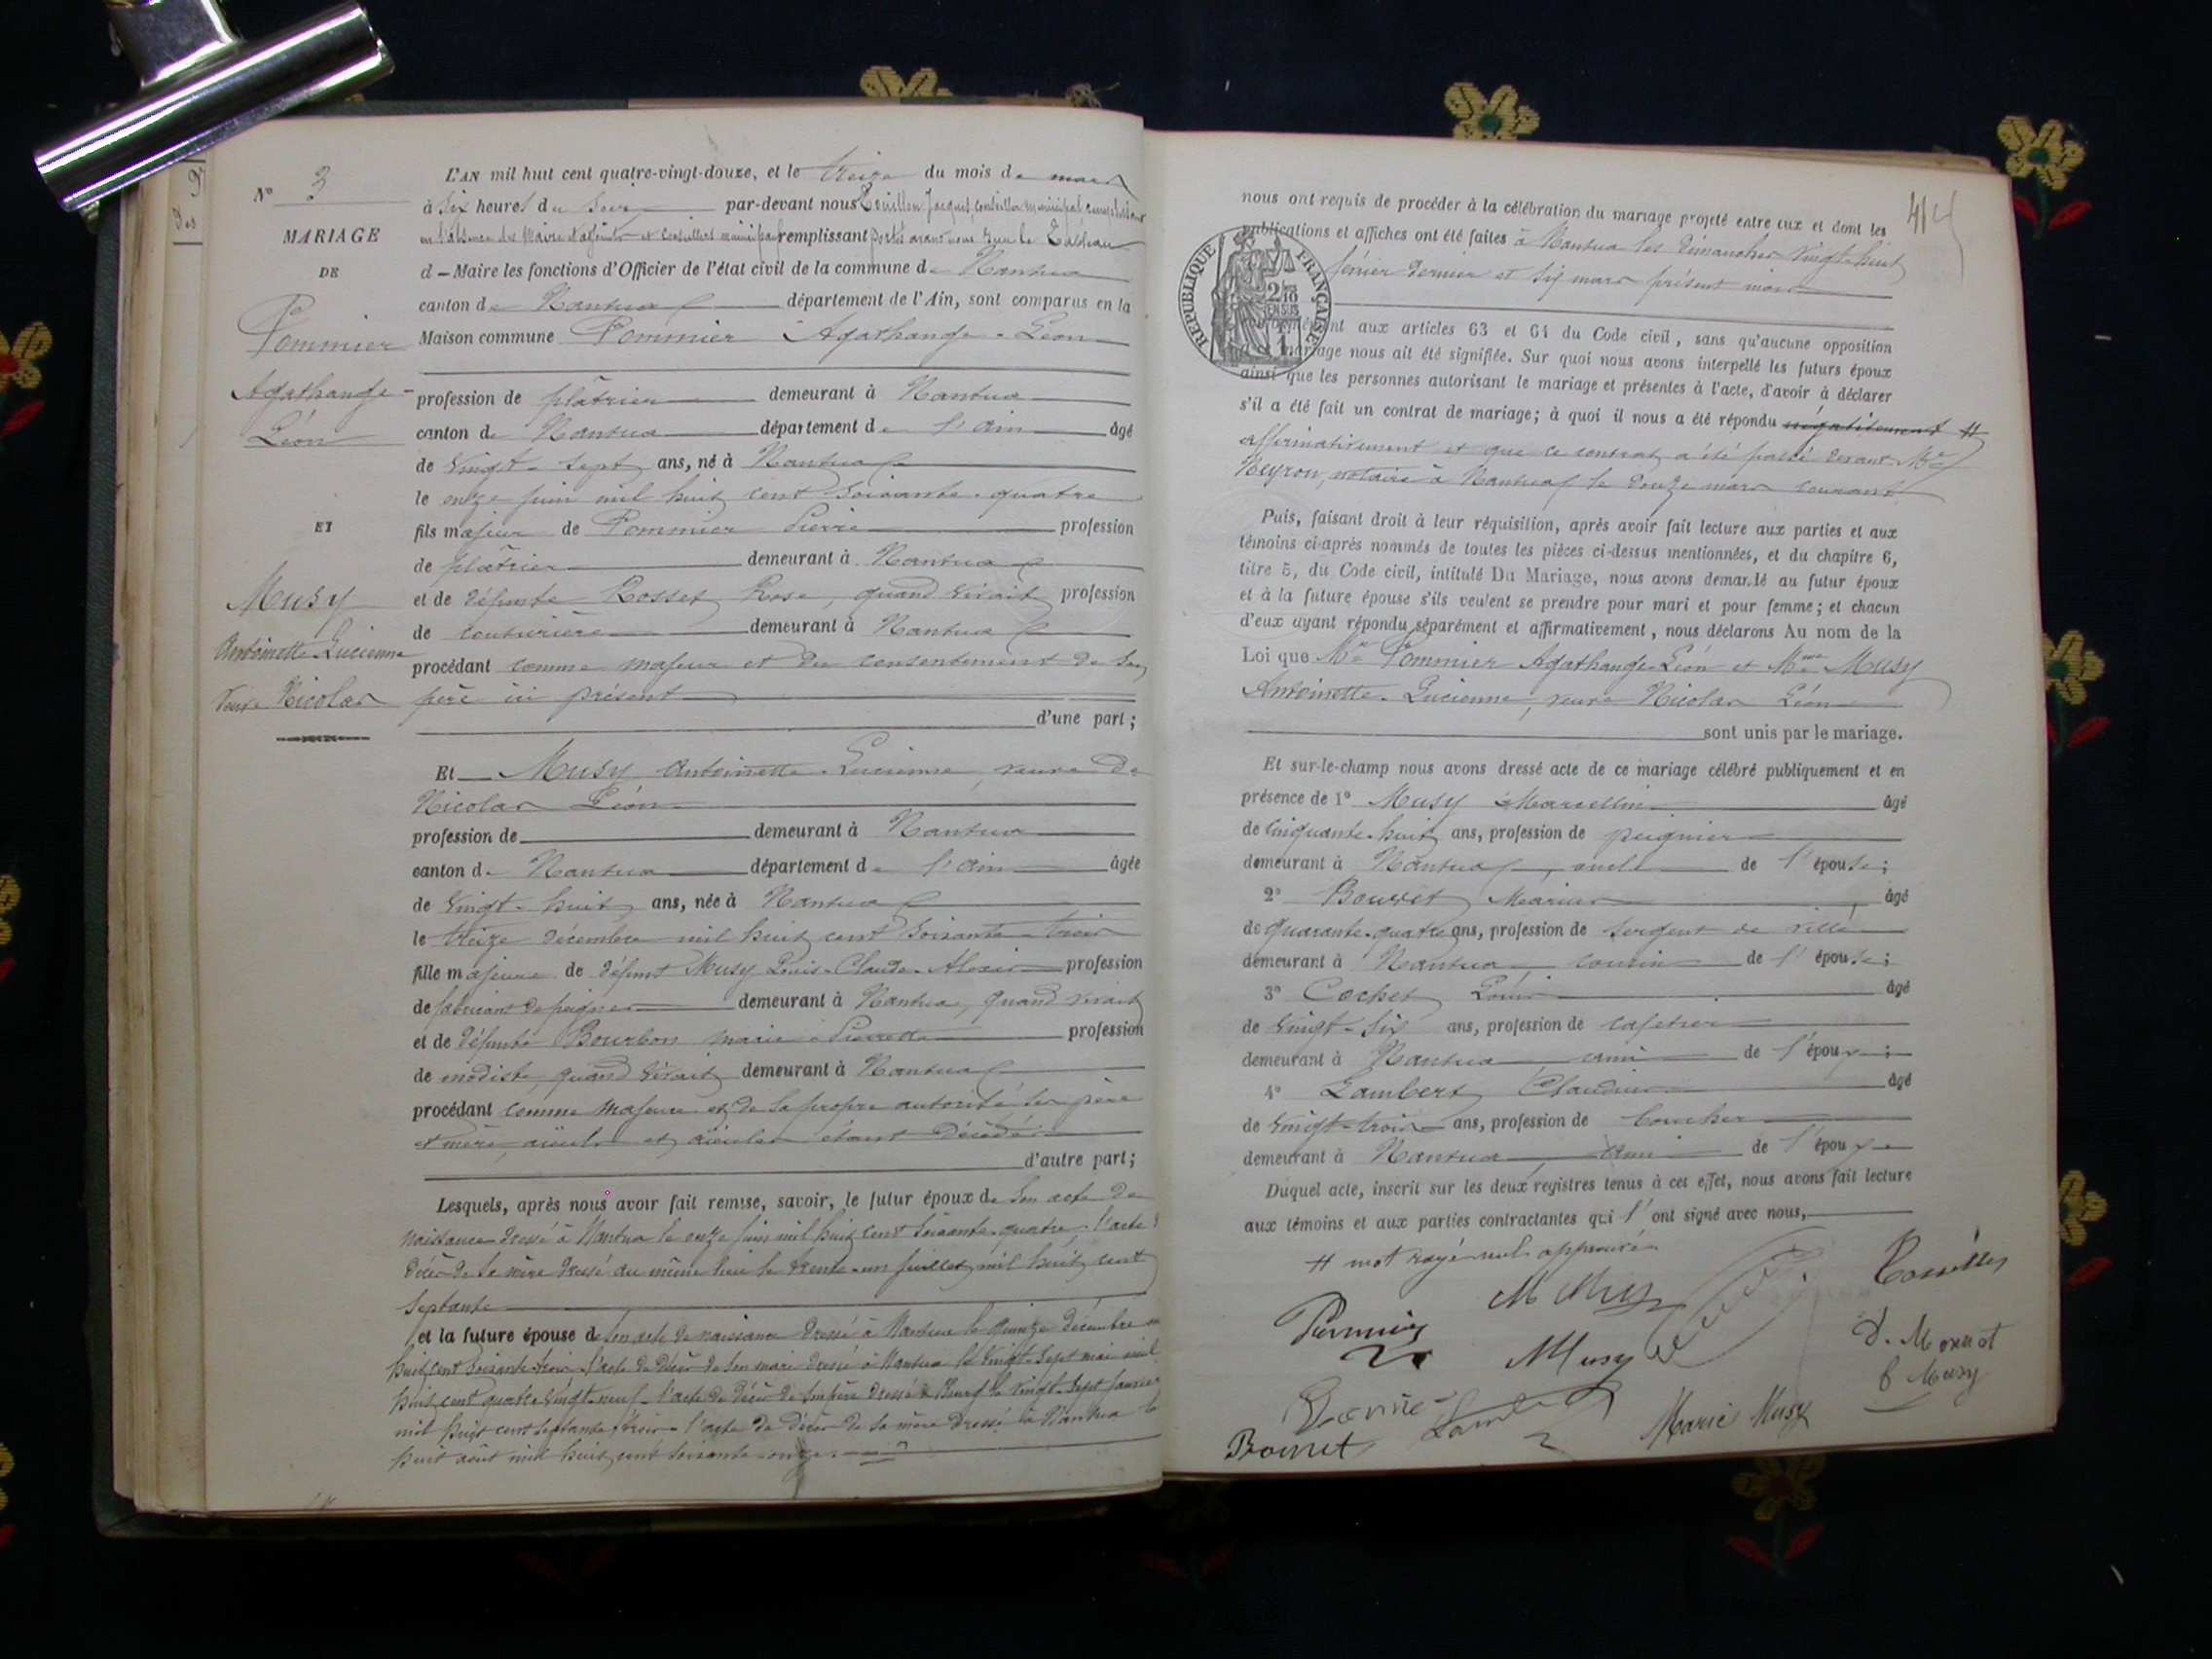 N° 3
MARIAGE
DE
Pommier
Agathange-
Léon
ET
Musy
Antoinette-Lucienne
veuve Nicolas
L'AN mil huit cent quatre-vingt-douze, et le treize du mois de mars
à six heures du soir par-devant nous Jacques, conseiller municipal
en l'absence des Maire et adjoints et conseillers municipaux remplissant portés avant nous sur le Tableau
d – Maire les fonctions d'Officier de l'état civil de la commune de Nantua
canton de Nantua département de l'Ain, sont comparus en la
Maison commune Pommier Agathange-Léon
profession de plâtrier demeurant à Nantua
canton de Nantua département de l'ain âgé
de vingt-sept ans, né à Nantua
le onze juin mil huit cent soixante-quatre
fils majeur de Pommier Pierre profession
de plâtrier demeurant à Nantua
et de défunte Rosset Rose, quand vivait profession
de couturière demeurant à Nantua
procédant comme majeur et du consentement de son
père ici présent
d'une part;
Et Musy Antoinette-Lucienne, veuve de
Nicolas Léon
profession de demeurant à Nantua
canton de Nantua département de l'ain âgée
de vingt-huit ans, née à Nantua
le treize décembre mil huit cent soixante-trois
fille majeure de défunt Musy Louis-Claude-Alexis profession
de fabricant de peignes demeurant à Nantua, quand vivait
et de défunte Bourbon marie-Pierrette profession
de modiste, quand vivait demeurant à Nantua
procédant comme majeure et de sa propre autorité ses père
et mère, aïeuls et aïeules étant décédés
d'autre part;
Lesquels, après nous avoir fait remise, savoir, le futur époux de son acte de
naissance dressé à Nantua le onze juin mil huit cent soixante-quatre, l'acte de
décès de sa mère dressé au même lieu le trente-un juillet mil huit cent
septante
et la future épouse de son acte de naissance dressé à Nantua le quinze décembre mil
huit cent soixante-trois, l'acte de décès de son mari dressé à Nantua le vingt-sept mai mil
huit cent quatre-vingt-neuf, l'acte de décès de son père dressé à Bourg le vingt-sept janvier
mil huit cent septante-trois, l'acte de décès de sa mère dressé à Nantua le
huit août mil huit cent soixante-onze.
414
nous ont requis de procéder à la célébration du mariage projeté entre eux et dont les
publications et affiches ont été faites à Nantua les dimanches vingt-huit
février dernier et six mars présent mois
REPUBLIQUE FRANÇAISE
2/10 EN SUS
conformément aux articles 63 et 64 du Code civil, sans qu'aucune opposition
mariage nous ait été signifiée. Sur quoi nous avons interpellé les futurs époux
ainsi que les personnes autorisant le mariage et présentes à l'acte, d'avoir à déclarer
s'il a été fait un contrat de mariage; à quoi il nous a été répondu négativement #
affirmativement et que ce contrat a été passé devant Me
Neyron, notaire à Nantua le douze mars courant
Puis, faisant droit à leur réquisition, après avoir fait lecture aux parties et aux
témoins ci-après nommés de toutes les pièces ci-dessus mentionnées, et du chapitre 6,
titre 5, du Code civil, intitulé Du Mariage, nous avons demandé au futur époux
et à la future épouse s'ils veulent se prendre pour mari et pour femme; et chacun
d'eux ayant répondu séparément et affirmativement, nous déclarons Au nom de la
Loi que Mr Pommier Agathange-Léon et Mme Musy
Antoinette-Lucienne, veuve Nicolas Léon
sont unis par le mariage.
Et sur-le-champ nous avons dressé acte de ce mariage célébré publiquement et en
présence de 1° Musy Marcellin âgé
de cinquante-huit ans, profession de peignier
demeurant à Nantua, oncle de l'épouse;
2° Bouvret Marius âgé
de quarante-quatre ans, profession de sergent de ville
demeurant à Nantua cousin de l'épouse;
3° Cochet Louis âgé
de vingt-six ans, profession de cafetier
demeurant à Nantua, ami de l'époux;
4° Lambert Claudius âgé
de vingt-trois ans, profession de boucher
demeurant à Nantua, ami de l'époux
Duquel acte, inscrit sur les deux registres tenus à cet effet, nous avons fait lecture
aux témoins et aux parties contractantes qui l'ont signé avec nous,
# mot rayé nul approuvé
Pommier
M Musy
Musy
Marie Musy
Musy
Bouvret